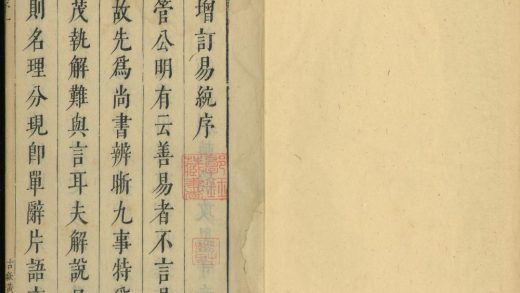 增訂易統序
管公明有云善易者不言
故先爲尚書辨晰九事特
茂執解難與言耳夫解說
則名理分現卽單辭片語